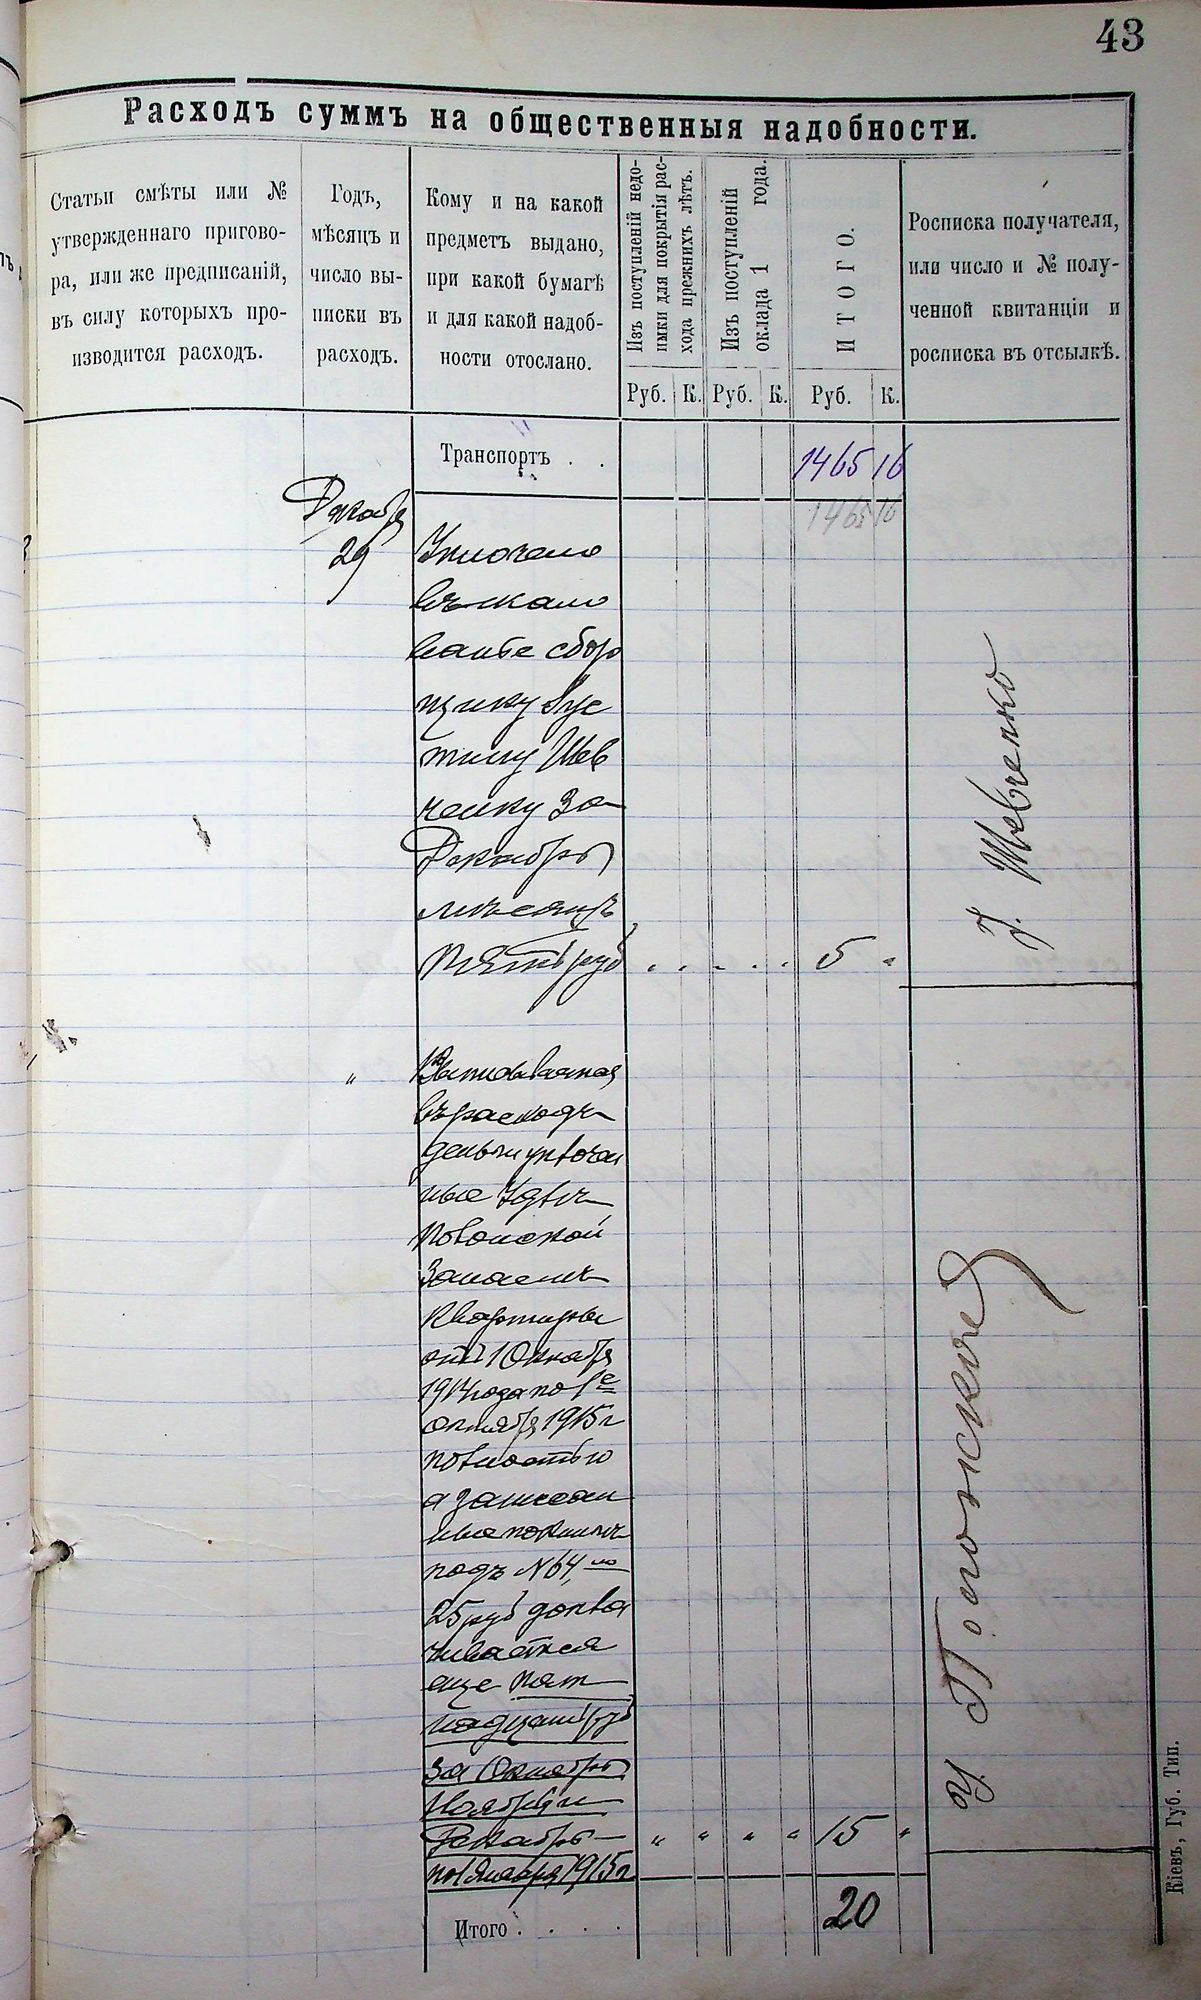 43
Расходъ суммъ на общественныя надобности.
Статьи смѣты или №
утвержденнаго пригово-
ра, или же предписаній,
въ силу которыхъ про-
изводится расходъ.
Годъ,
мѣсяцъ и
число вы-
писки въ
расходъ.
Кому и на какой
предметъ выдано,
при какой бумагѣ
и для какой надоб-
ности отослано.
Изъ поступленій недо-
имки для покрытія рас-
хода прежнихъ лѣтъ.
Изъ поступленій
оклада 1 года.
ИТОГО.
Росписка получателя,
или число и № полу-
ченной квитанціи и
росписка въ отсылкѣ.
Руб. К. Руб. К. Руб. К.
Транспортъ . . 1465 16
1465 16
Декабря
29
Уплочено
въ жало
ванье сбор
щику
Шев
ченку за
Декабрь
мѣсяцъ
пять руб . . . . . 5 „
І. Шевченко
„
въ расходъ
деньги
ные
квартиры
отъ 1 Октября
1914 года по 1е
октября 1915 г
а записан
ные
подъ № 64, но
25 руб допла
чивается
еще пят
надцать руб
за Октябрь
Ноябрь и
Декабрь „ „ „ „ 15 „
по 1 Января 1915 г
Итого . . . . 20
Кіевъ, Губ. Тип.